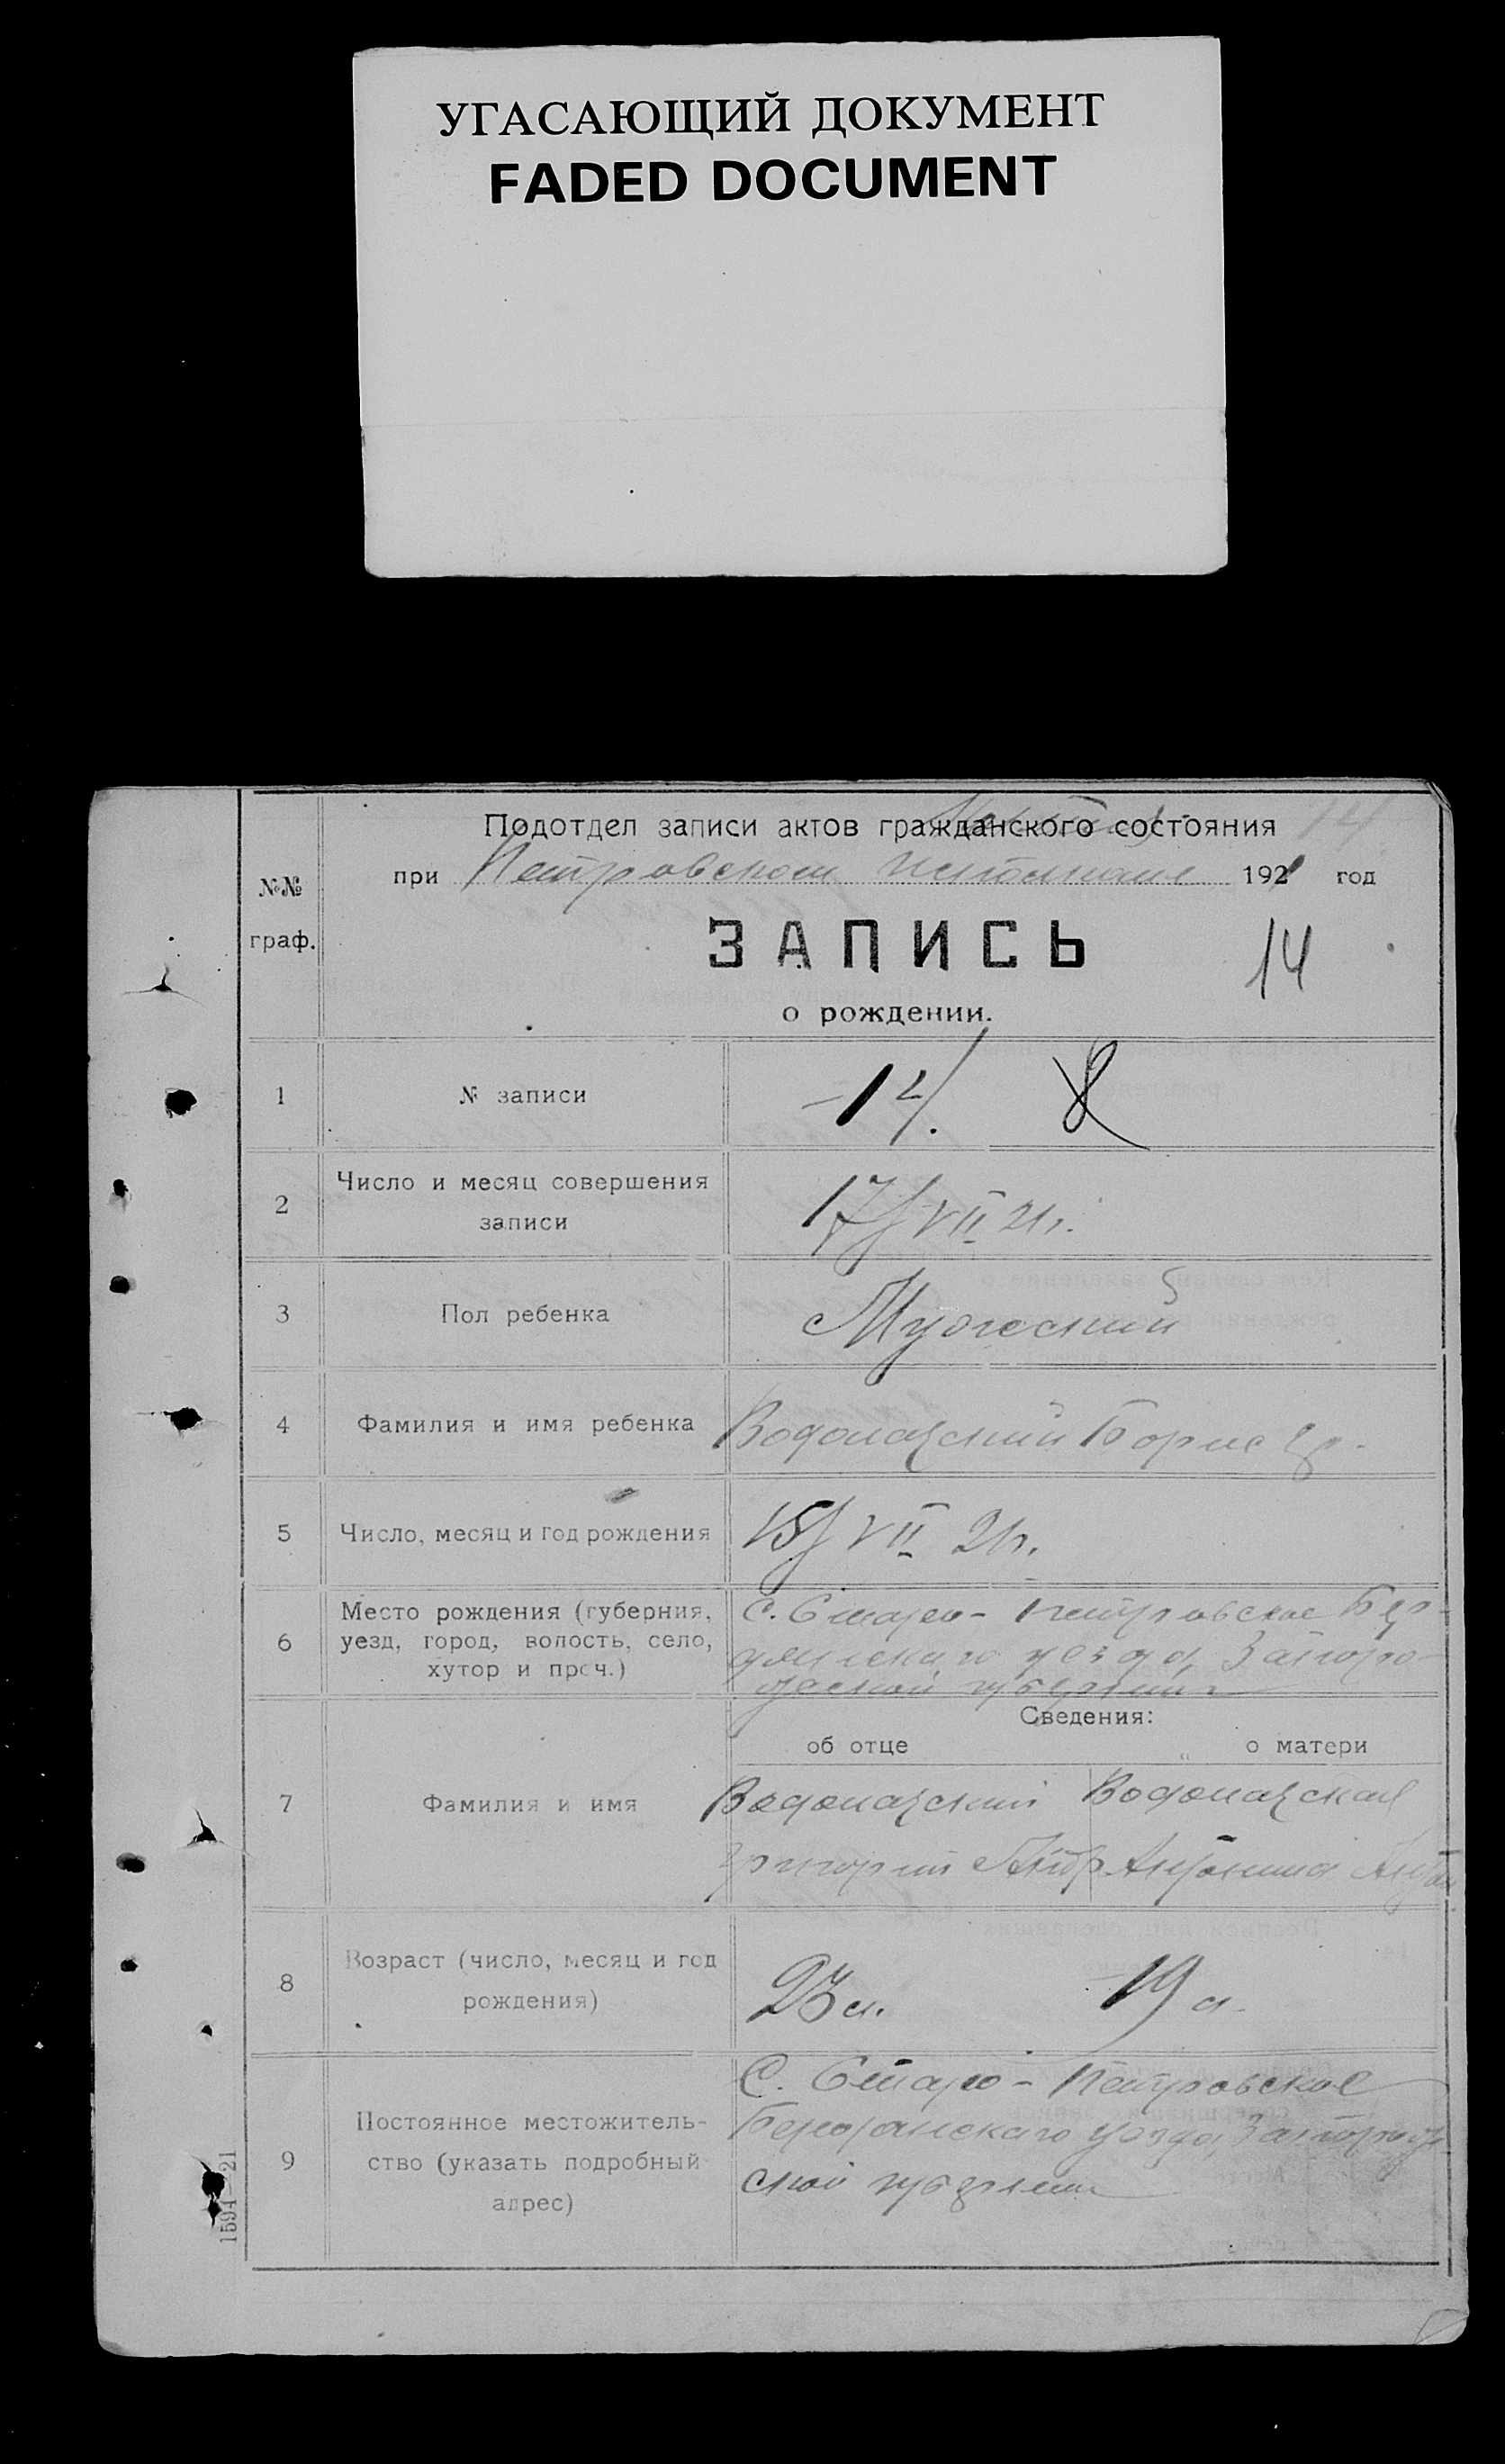 УГАСАЮЩИЙ ДОКУМЕНТ
FADED DOCUMENT
Подотдел записи актов гражданского состояния
при Петровском 1921 год
№№
граф.
ЗАПИСЬ
14
о рождении.
1 № записи 14.
2 Число и месяц совершения
записи
17/VII 21 г.
3 Пол ребенка Мужеский
4 Фамилия и имя ребенка Водолазский Борис Гр.
5 Число, месяц и год рождения 15/VII 21 г.
6 Место рождения (губерния,
уезд, город, волость, село,
хутор и проч.)
С. Старо-Петровское Бер-
дянскаго уезда, Запоро-
жской губернии
Сведения:
об отце о матери
7 Фамилия и имя
Водолазский Водолазская
Григорий Антонина
8 Возраст (число, месяц и год
рождения)
23 л. 19 л.
9 Постоянное местожитель-
ство (указать подробный
адрес)
С. Старо-Петровское
Бердянскаго уезда, Запорож
ской губернии
1591—21